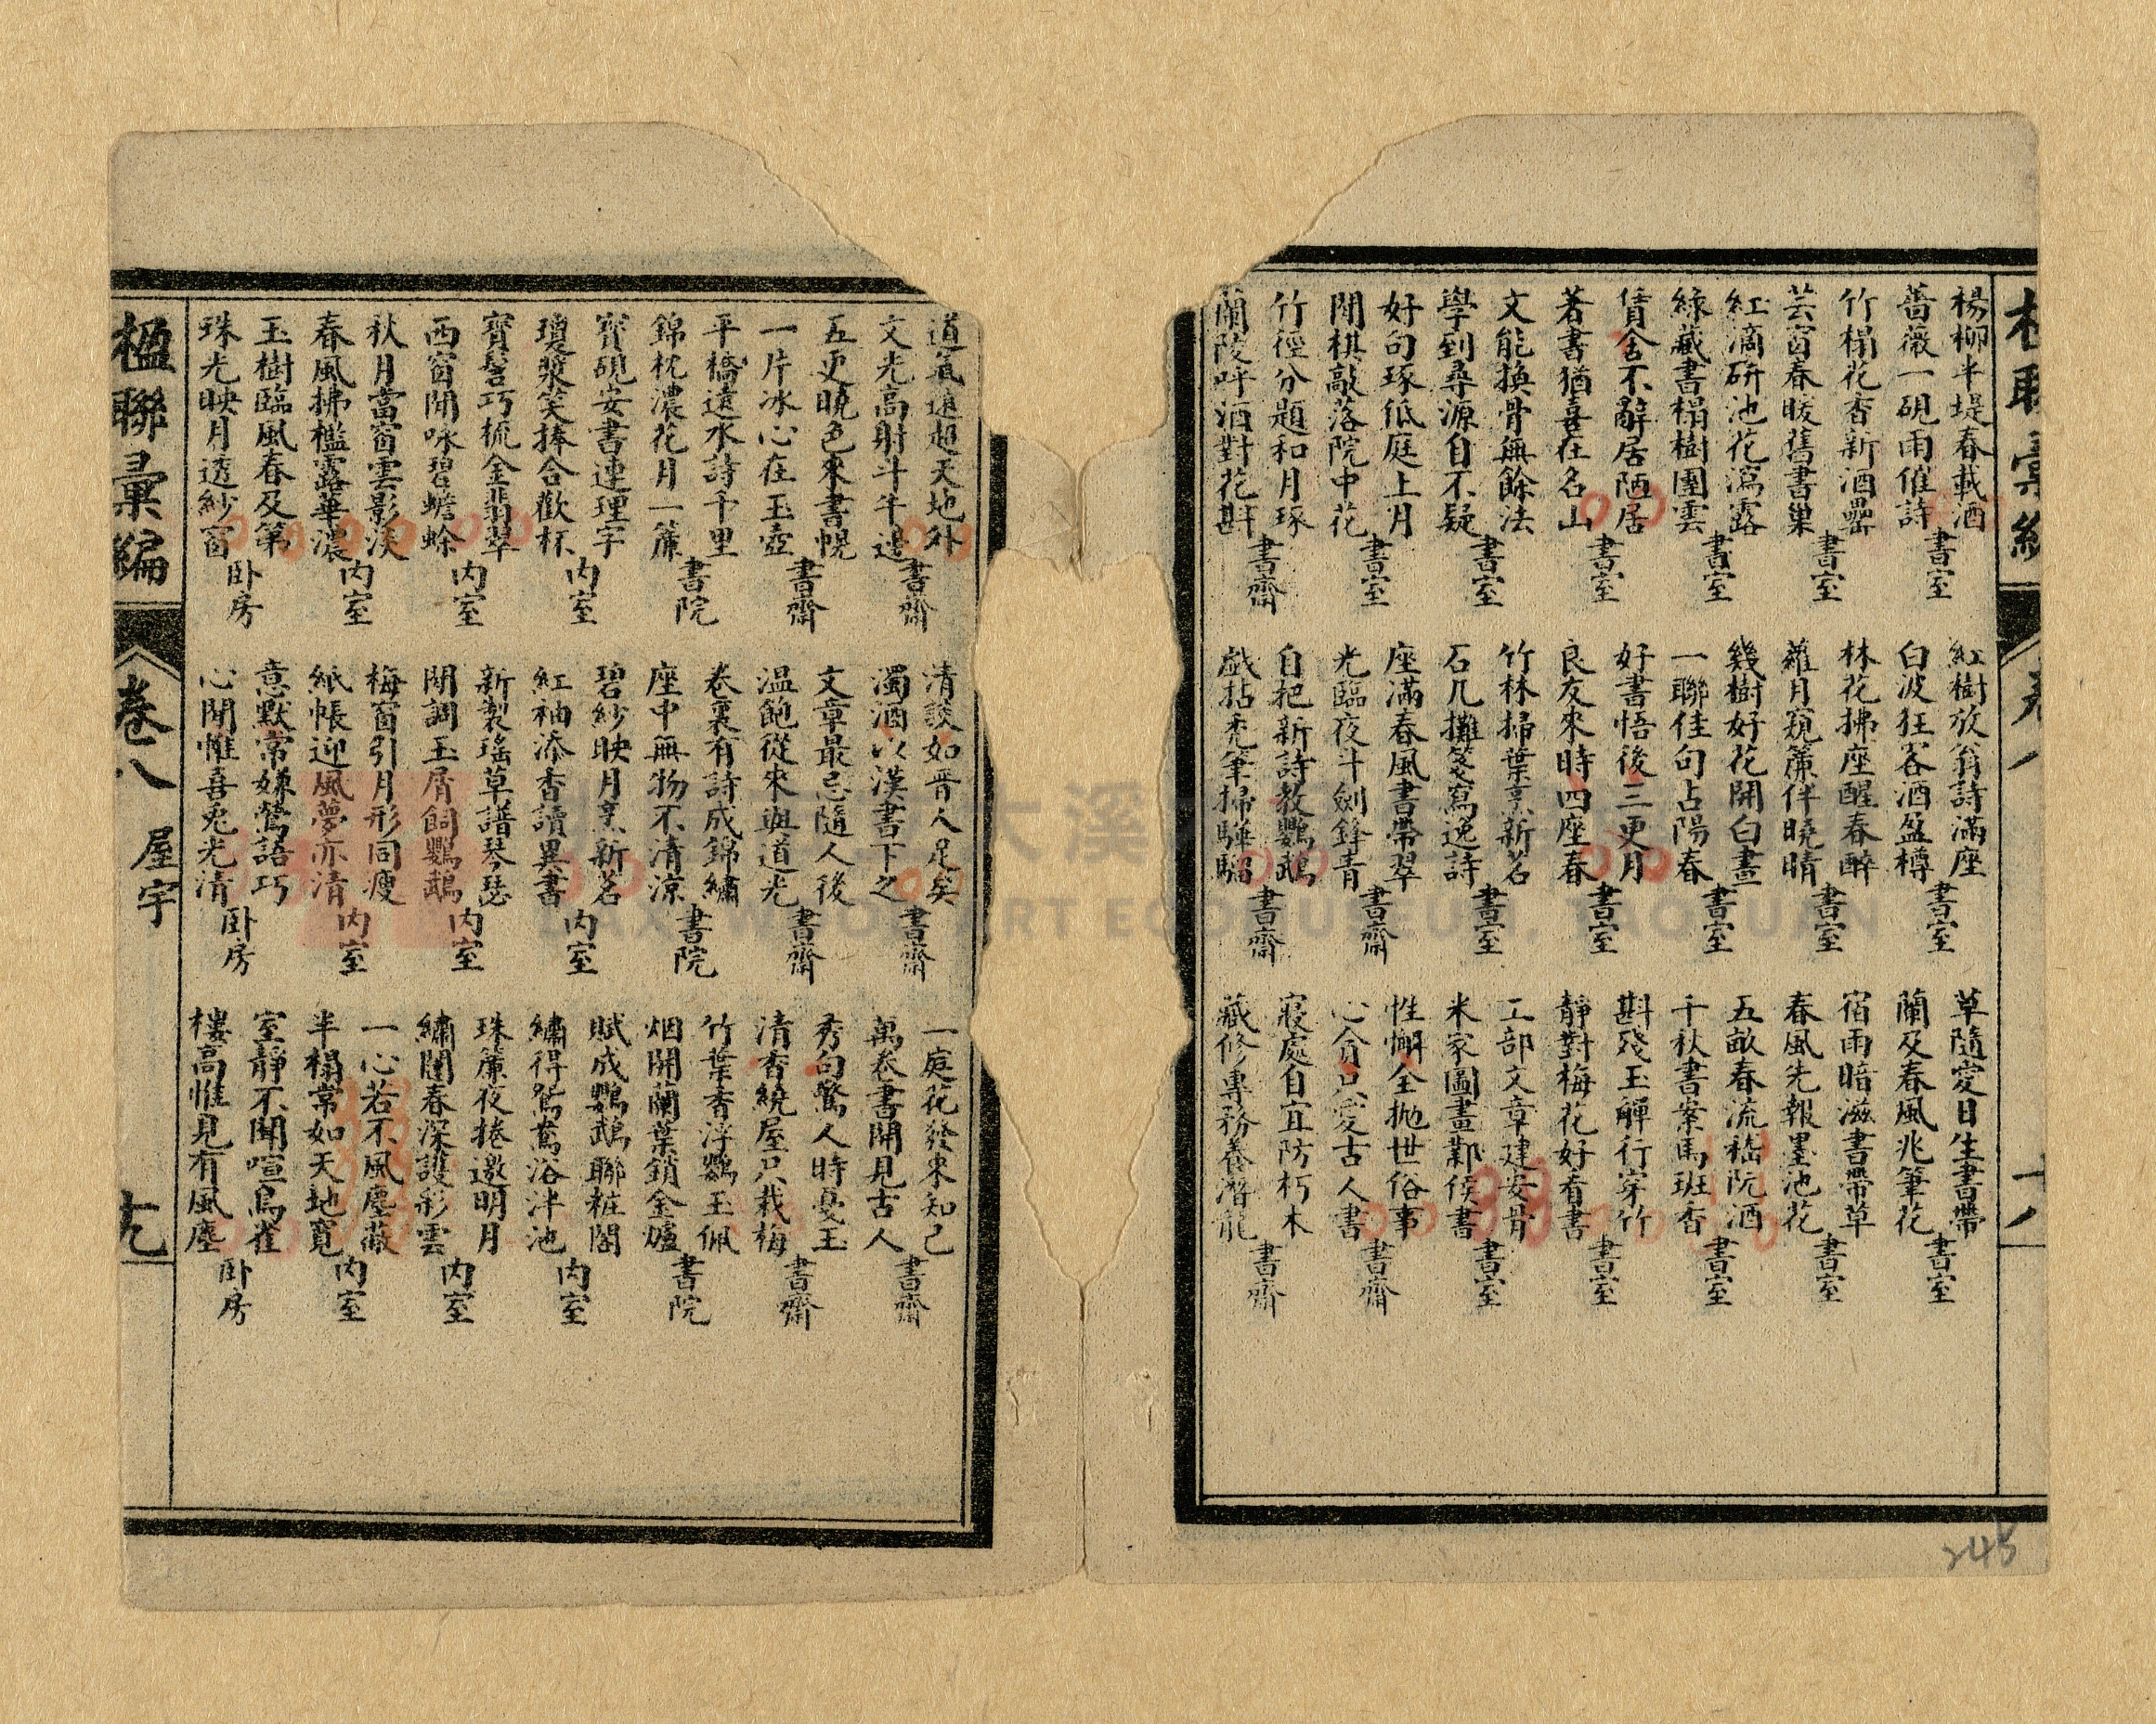 楊柳半堤春載酒
薔薇一硯雨催詩
書室
竹榻花香新酒罍
芸窗春暖舊書巢
書室
紅滴研池花瀉露
綠藏書榻樹團雲
書室
賃舍不辭居陋居
著書猶喜在名山
書室
文能換骨無餘法
學到尋源自不疑
書室
好句琢低庭上月
閒棋敲落院中花
書室
竹徑分題和月琢
蘭陵呼酒對花斟
書齋
紅樹放翁詩滿座
白波狂客酒盈樽
書室
林花拂座醒春醉
蘿月窺簾伴曉晴
書室
幾樹好花開白晝
一聯佳句占陽春
書室
好書悟後三更月
良友來時四座春
書室
竹林掃葉烹新茗
石几攤箋寫逸詩
書室
座滿春風書帶翠
光臨夜斗劍鋒青
書齋
自把新詩教鸚鵡
戲拈禿筆掃驊騮
書齋
草隨定日生書帶
蘭及春風兆筆花
書室
宿雨暗滋書帶草
春風先報墨池花
書室
五畝春流嵇阮酒
千秋書案馬班香
書室
斟殘玉觶行穿竹
靜對梅花好看書
書室
工部文章建安骨
米家圖畫鄴侯書
書室
性懈全拋世俗事
心貪只愛古人書
書齋
寢處自宜防朽木
藏修專務養潛龍
書齋
道氣逈超天地外
文光高射斗牛邊
書齋
五更曉色來書幌
一片冰心在玉壺
書齋
平橋遠水詩千里
錦枕濃花月一簾
書院
寶硯安書連理字
瓊漿笑捧合歡杯
內室
寶髻巧梳金翡翠
西窗閒咏碧蟾蜍
內室
秋月當窗雲影淡
春風拂檻露華濃
內室
玉樹臨風春及第
珠光映月透紗窗
卧房
清談如晉人足矣
濁酒以漢書下之
書齋
文章最忌隨人後
溫飽從來與道光
書齋
卷裏有詩成錦繡
座中無物不清涼
書院
碧紗映月烹新茗
紅袖添香讀異書
內室
新製瑤草譜琴瑟
閒調玉屑飼鸚鵡
內室
梅窗引月形同瘦
紙帳迎風夢亦清
內室
意默常嫌鶯語巧
心閒惟喜兎光清
卧房
一庭花發來知己
萬卷書開見古人
書齋
秀句驚人時戞玉
清香繞屋只栽梅
書齋
竹葉香浮鸚玉佩
烟開蘭葉銷金爐
書院
賦成鸚鵡聯粧閣
繡得鴛鴦浴泮池
內室
珠簾夜捲邀明月
繡閣春深護彩雲
內室
一心若不風塵蔽
半榻常如天地寬
內室
室靜不聞喧鳥雀
樓高惟見有風塵
卧房
楹聯彙編
卷八
屋宇
245
DAXI WOOD ART ECOMUSEUM, TAOYUAN